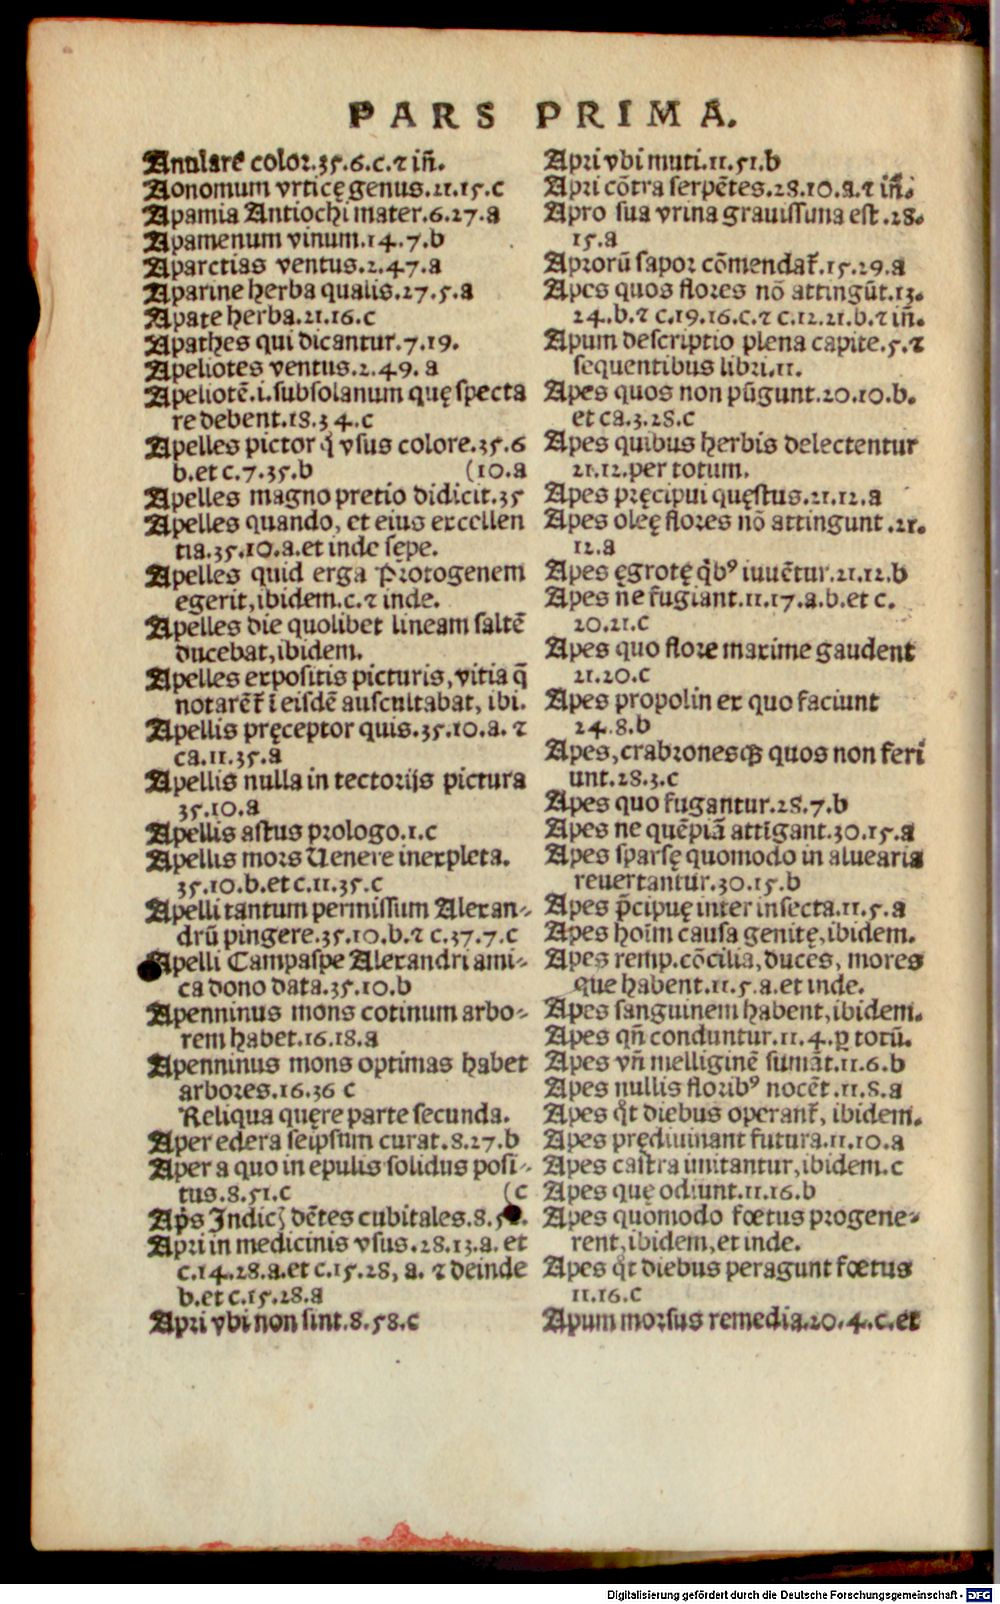 PARS PRIMA.
Anulare color.35.6.c.⁊ in̄.
Aonomum vrticę genus.21.15.c
Apamia Antiochi mater.6.27.a
Apamenum vinum.14.7.b
Aparctias ventus.2.47.a
Aparine herba qualis.27.5.a
Apate herba.21.16.c
Apathes qui dicantur.7.19.
Apeliotes ventus.2.49. a
Apeliotē.i.subsolanum quę specta
re debent.18.34.c
Apelles pictor q̇ vsus colore.35.6
b.et c.7.35.b (10.a
Apelles magno pretio didicit.35
Apelles quando, et eius excellen
tia.35.10.a.et inde sępe.
Apelles quid erga Protogenem
egerit,ibidem.c.⁊ inde.
Apelles die quolibet lineam saltē
ducebat,ibidem.
Apelles expositis picturis,vitia q̄
notarēt᷑ ī eisdē auscultabat, ibi.
Apellis pręceptor quis.35.10.a. ⁊
ca.11.35.a
Apellis nulla in tectorijs pictura
35.10.a
Apellis astus prologo.1.c
Apellis mors Uenere inexpleta.
35.10.b.et c.11.35.c
Apelli tantum permissum Alexan-
drū pingere.35.10.b.⁊ c.37.7.c
Apelli Campaspe Alexandri ami-
ca dono data.35.10.b
Apenninus mons cotinum arbo-
rem habet.16.18.a
Apenninus mons optimas habet
arbores.16.36 c
Reliqua quęre parte secunda.
Aper edera seipsum curat.8.27.b
Aper a quo in epulis solidus posi-
tus.8.51.c (c
Apri Indici dētes cubitales.8.
Apri in medicinis vsus.28.13.a. et
c.14.28.a.et c.15.28, a. ⁊ deinde
b.et c.15.28.a
Apri vbi non sint.8.58.c
Apri vbi muti.11.51.b
Apri cōtra serpētes.28.10.a.⁊ in̄.
Apro sua vrina grauissima est .28.
15.a
Aprorū sapor cōmendat᷑.15.29.a
Apes quos flores nō attingūt.13.
24.b.⁊ c.19.16.c.⁊ c.12.21.b.⁊ in̄.
Apum descriptio plena capite.5.⁊
sequentibus libri.11.
Apes quos non pūgunt.20.10.b.
et ca.3.28.c
Apes quibus herbis delectentur
21.12.per totum.
Apes pręcipui quęstus.21.12.a
Apes oleę flores nō attingunt .21.
12.a
Apes ęgrotę q̇bꝰ iuuētur.21.12.b
Apes ne fugiant.11.17.a.b.et c.
20.21.c
Apes quo flore maxime gaudent
21.20.c
Apes propolin ex quo faciunt
24.8.b
Apes,crabronesqꝫ quos non feri
unt.28.3.c
Apes quo fugantur.28.7.b
Apes ne quēpiā attīgant.30.15.a
Apes sparsę quomodo in aluearia
reuertantur.30.15.b
Apes p̄cipuę inter insecta.11.5.a
Apes hoīm causa genitę,ibidem.
Apes remp.cōcilia,duces, mores
que habent.11.5.a.et inde.
Apes sanguinem habent,ibidem.
Apes qn̄ conduntur.11.4.ꝑ totū.
Apes vn̄ melliginē sumāt.11.6.b
Apes nullis floribꝰ nocēt.11.8.a
Apes q̇t diebus operant᷑, ibidem.
Apes prędiuinant futura.11.10.a
Apes castra imitantur,ibidem.c
Apes quę odiunt.11.16.b
Apes quomodo fœtus progene-
rent,ibidem,et inde.
Apes q̇t diebus peragunt fœtus
11.16.c
Apum morsus remedia.20.4.c.et
Digitalisierung gefördert durch die Deutsche Forschungsgemeinschaft - DFG